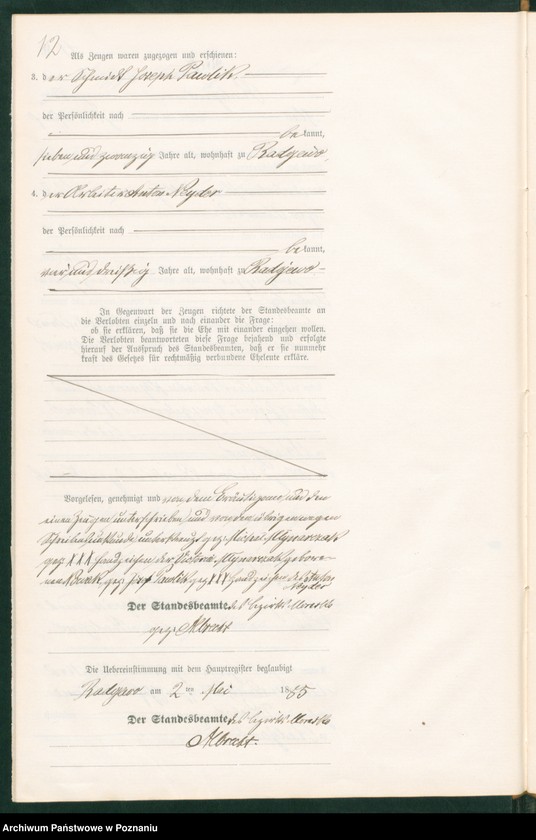 12
Als Zeugen waren zugezogen und erschienen:
3. der Schmidt Joseph Pawlik
der Persönlichkeit nach
bekannt,
sieben und zwanzig Jahre alt, wohnhaft zu Radzewo,
4. der Arbeiter Anton
der Persönlichkeit nach
bekannt,
vier und dreißig Jahre alt, wohnhaft zu Radzewo
In Gegenwart der Zeugen richtete der Standesbeamte an
die Verlobten einzeln und nach einander die Frage:
ob sie erklären, daß sie die Ehe mit einander eingehen wollen.
Die Verlobten beantworteten diese Frage bejahend und erfolgte
hierauf der Ausspruch des Standesbeamten, daß er sie nunmehr
kraft des Gesetzes für rechtmäßig verbundene Eheleute erkläre.
Vorgelesen, genehmigt und von dem Bräutigam und den
einen Zeugen unterschrieben und von den übrigen wegen
Schreibensunkunde unterkreuzt gez. Michael
gez. XXX Handzeichen der geborenen
gez. Pawlik gez. XXX Handzeichen des Anton
Der Standesbeamte des Bezirks
gez. Albrecht
Die Uebereinstimmung mit dem Hauptregister beglaubigt
Radzewo am 2ten Mai 1885
Der Standesbeamte des Bezirks
Albrecht.
Archiwum Państwowe w Poznaniu